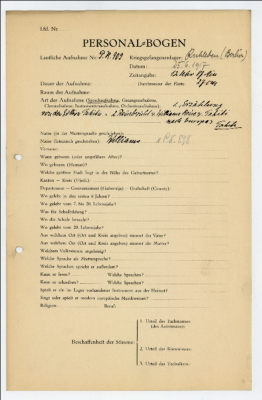 Lfd. Nr
PERSONAL-BOGEN
Lautliche Aufnahme Nr: P.K. 989 Kriegsgefangenenlager: Ruhleben (Berlin)
Datum: 25.6.1917
Zeitangabe:
Dauer der Aufnahme: Durchmesser der Platte: 27 cm
Raum der Aufnahme:
Art der Aufnahme (Sprechaufnahme, Gesangsaufnahme,
Choraufnahme, Instrumentenaufnahme, Orchesteraufnahme):
Name (in der Muttersprache geschrieben):
Name (lateinisch geschrieben):
Vorname:
Wann geboren (oder ungefähres Alter)?
Wo geboren (Heimat)?
Welche größere Stadt liegt in der Nähe des Geburtsortes?
Kanton — Kreis (Ujedz):
Departement — Gouvernement (Gubernija) — Grafschaft (County):
Wo gelebt in den ersten 6 Jahren?
Wo gelebt vom 7. bis 20. Lebensjahr?
Was für Schulbildung?
Wo die Schule besucht?
Wo gelebt vom 20. Lebensjahr?
Aus welchem Ort (Ort und Kreis angeben) stammt der Vater?
Aus welchem Ort (Ort und Kreis angeben) stammt die Mutter?
Welchem Volksstamm angehörig?
Welche Sprache als Muttersprache?
Welche Sprachen spricht er außerdem?
Kann er lesen? Welche Sprachen?
Kann er schreiben? Welche Sprachen?
Spielt er ein im Lager vorhandenes Instrument aus der Heimat?
Singt oder spielt er modern europäische Musikweisen?
Religion: Beruf:
Beschaffenheit der Stimme:
1. Urteil des Fachmannes
(des Assistenten):
2. Urteil des Kommissars:
3. Urteil des Technikers: